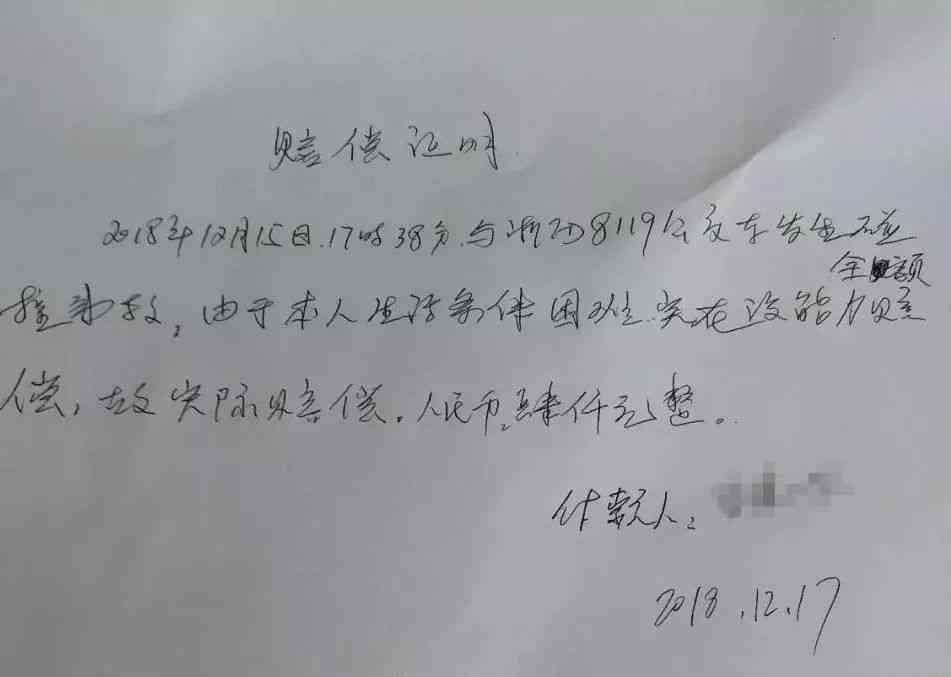 赔偿证明
2018年12月15日.17时38分.与浙D8119公交车发生碰
全额
撞事故，由于本人生活条件困难.实在没能力赔
偿，故实际赔偿。人民币：肆仟元整。
付款人：
2018.12.17